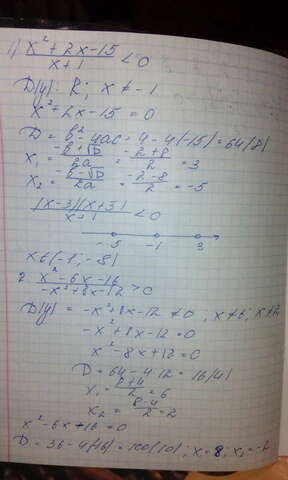 1) x² + 2x - 15 / x + 1 < 0
D(y): R; x ≠ -1
x² + 2x - 15 = 0
D = b² - 4ac = 4 - 4(-15) = 64(8)
x₁ = -b + √D / 2a = -2 + 8 / 2 = 3
x₂ = -b - √D / 2a = -2 - 8 / 2 = -5
(x-3)(x+5) / x+1 < 0
-5 -1 3
2. x² - 6x - 16 / -x² + 8x - 12 > 0
D(y) = -x² + 8x - 12 ≠ 0; x ≠ 6; x ≠ 2
-x² + 8x - 12 = 0
x² - 8x + 12 = 0
D = 64 - 4·12 = 16(4)
x₁ = 8+4 / 2 = 6
x₂ = 8-4 / 2 = 2
x² - 6x + 16 = 0
D = 36 - 4(16) = 100(10); x = 8; x₂ = -2